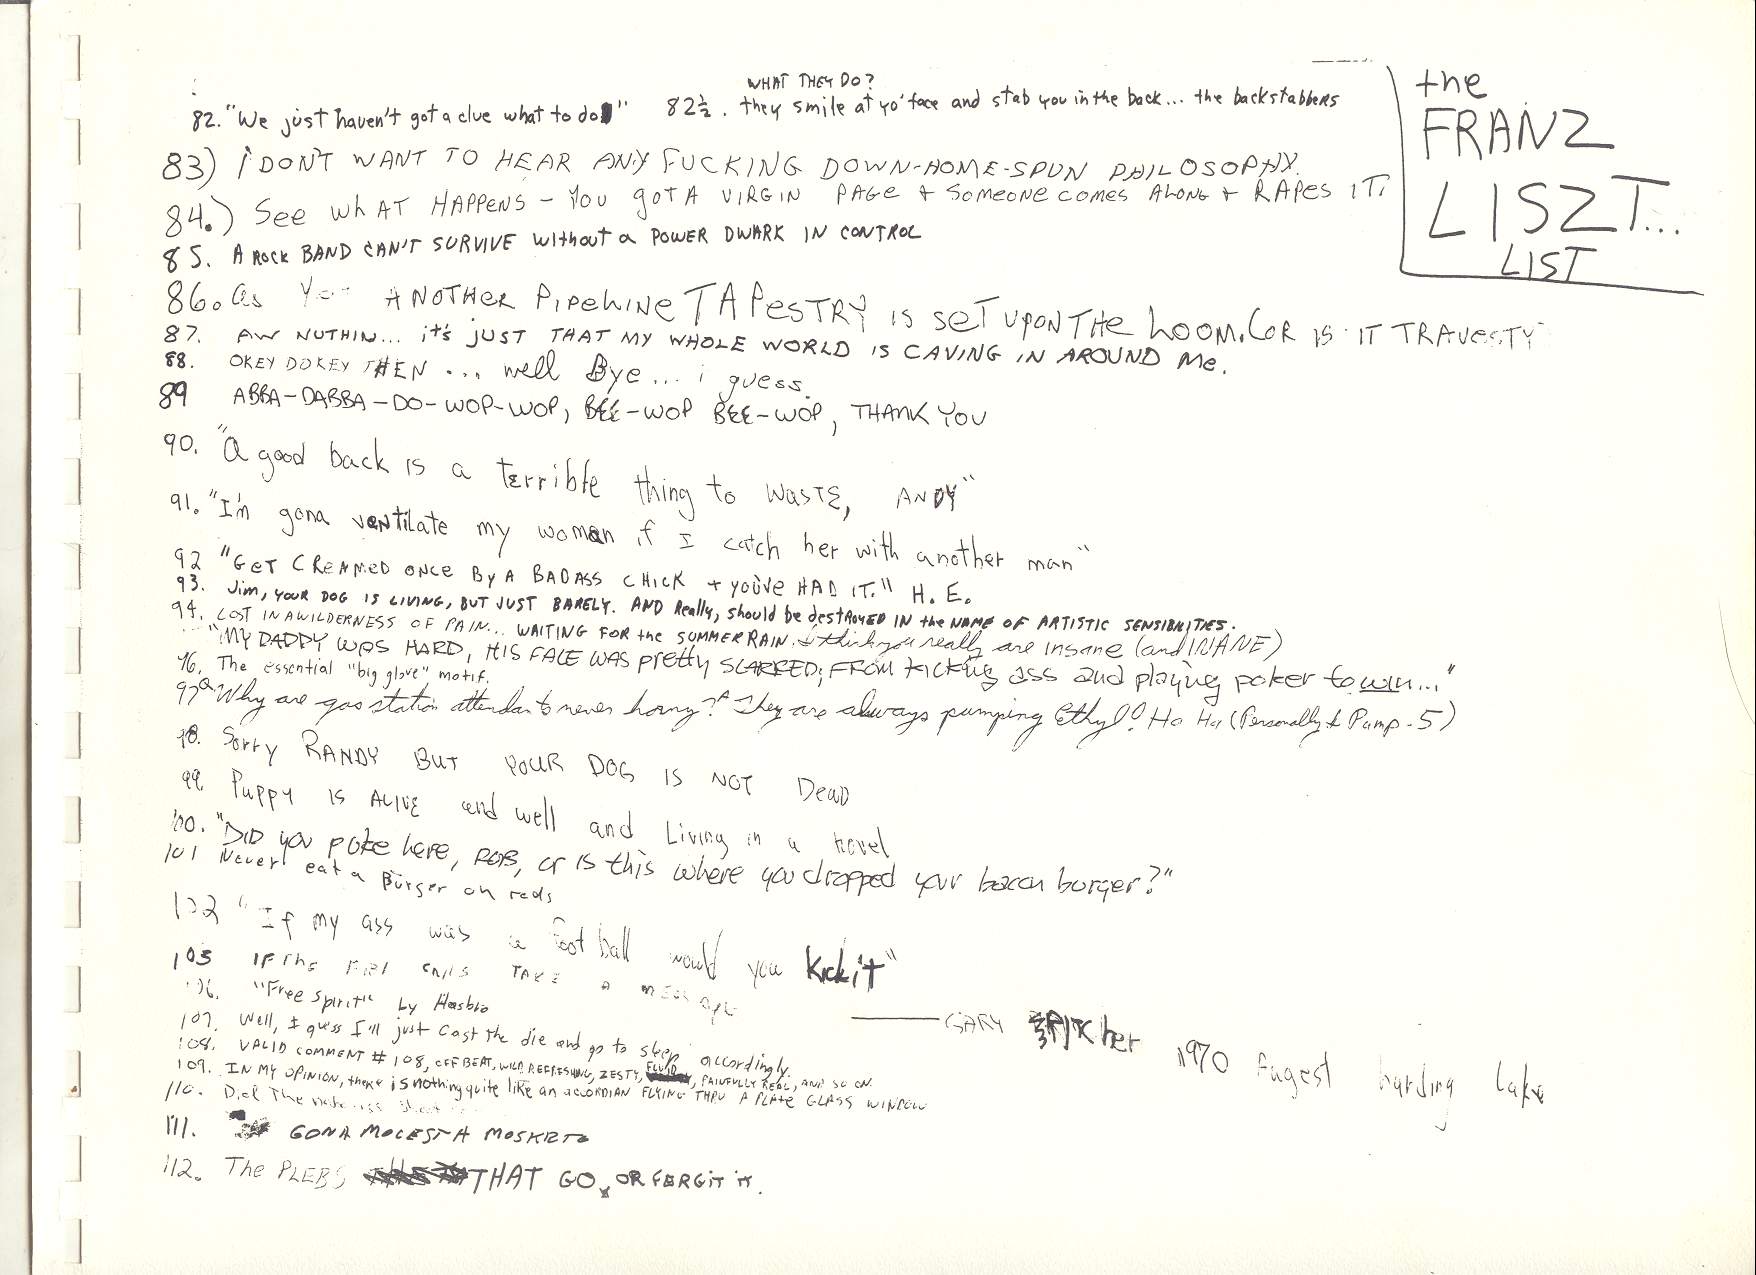 the
FRANZ
LISZT...
LIST
WHAT THEY DO?
82. "We just haven't got a clue what to do" 82½. they smile at yo' face and stab you in the back... the backstabbers
83) i DON'T WANT TO HEAR ANY FUCKING DOWN-HOME-SPUN PHILOSOPHY.
84.) See whAT HAPPENS - YOU gOT A VIRGIN PAGE + SOMEONE COMES ALONG + RAPES IT.
85. A ROCK BAND CAN'T SURVIVE without a POWER DWARK IN CONTROL
86. as ANOTHER PIPELINE TAPESTRY is SET UPON THE LOOM. (OR IS IT TRAVESTY
87. AW NUTHIN... it's JUST THAT MY WHOLE WORLD IS CAVING IN AROUND Me.
88. OKEY DOKEY THEN ... well Bye... i guess.
89 ABBA-DABBA-DO-WOP-WOP, BEE-WOP BEE-WOP, THANK YOU
90. "A good back is a terrible thing to WASTE, ANDY"
91. "I'm gona ventilate my woman if I catch her with another man"
92 "GET CREAMED ONCE BY A BADASS CHICK + YOU'VE HAD IT." H.E.
93. Jim, YOUR DOG IS LIVING, BUT JUST BARELY. AND Really, should be destroyed IN the NAME OF ARTISTIC SENSIBILITIES.
94. LOST IN A WILDERNESS OF PAIN... WAITING FOR the SUMMER RAIN. I think you really are insane (and INANE)
"MY DADDY WAS HARD, HIS FACE WAS pretty SCARRED; FROM kicking ass and playing poker to win..."
96. The essential "big glove" motif.
97 Q Why are gas station attendants never horny? A They are always pumping Ethyl! Ha Ha (Personally I Pump-5)
98. Sorry RANDY BUT YOUR DOG IS NOT Dead
99. Puppy IS ALIVE and well and Living in a novel
100. "DID you poke here, ROB, or is this where you dropped your bacon burger?"
101 Never eat a Burger on reds
102 "If my ass was a football would you kick it"
103 IF the CALLS TAKE A MESSAGE
106. "Free spirit" by Hasbro
GARY
1970 harding Lake
107. Well, I guess I'll just cast the die and go to sleep accordingly.
108. VALID COMMENT #108, OFF BEAT, WILD, REFRESHING, ZESTY, FLUID, PAINFULLY REAL, AND SO ON.
109. IN MY OPINION, there is nothing quite like an accordian FLYING THRU A PLATE GLASS WINDOW
110. Did The
111. GONA MOLEST A MOSKETO
112. The PLEBS THAT GO, OR FERGIT IT.